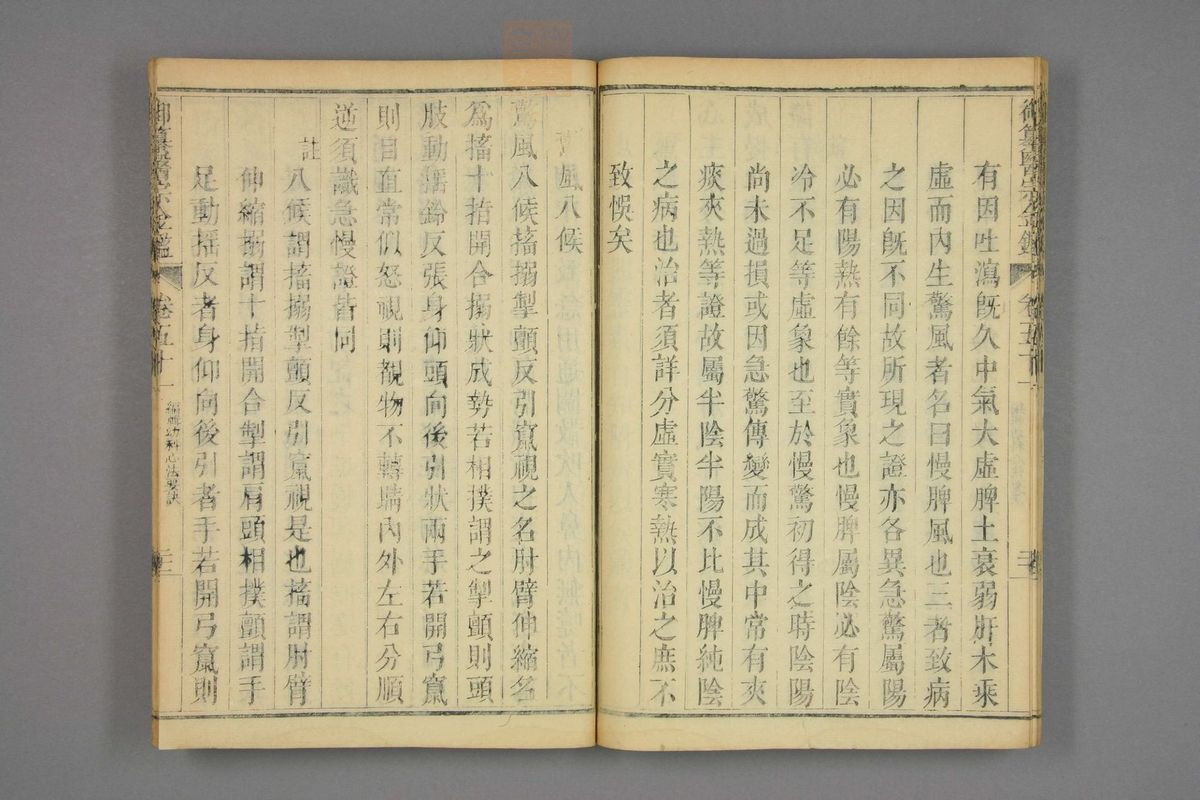 御纂醫宗金鑑 卷五十一
有因吐瀉旣久中氣大虛脾土衰弱肝木乘
虛而內生驚風者名曰慢脾風也三者致病
之因旣不同故所現之證亦各異急驚屬陽
必有陽熱有餘等實象也慢脾屬陰必有陰
冷不足等虛象也至於慢驚初得之時陰陽
尚未過損或因急驚傳變而成其中常有夾
痰夾熱等證故屬半陰半陽不比慢脾純陰
之病也治者須詳分虛實寒熱以治之庶不
致悞矣
風八候
驚風八候搐搦掣顫反引竄視之名肘臂伸縮名
爲搐十指開合搦狀成勢若相撲謂之掣顫則頭
肢動搖鈴反張身仰頭向後引狀兩手若開弓竄
則目直常似怒視則覩物不轉睛內外左右分順
逆須識急慢證皆同
註
八候謂搐搦掣顫反引竄視是也搐謂肘臂
伸縮搦謂十指開合掣謂肩頭相撲顫謂手
足動搖反者身仰向後引者手若開弓竄則
御纂醫宗金鑑 卷五十一 編輯幼科心法要訣